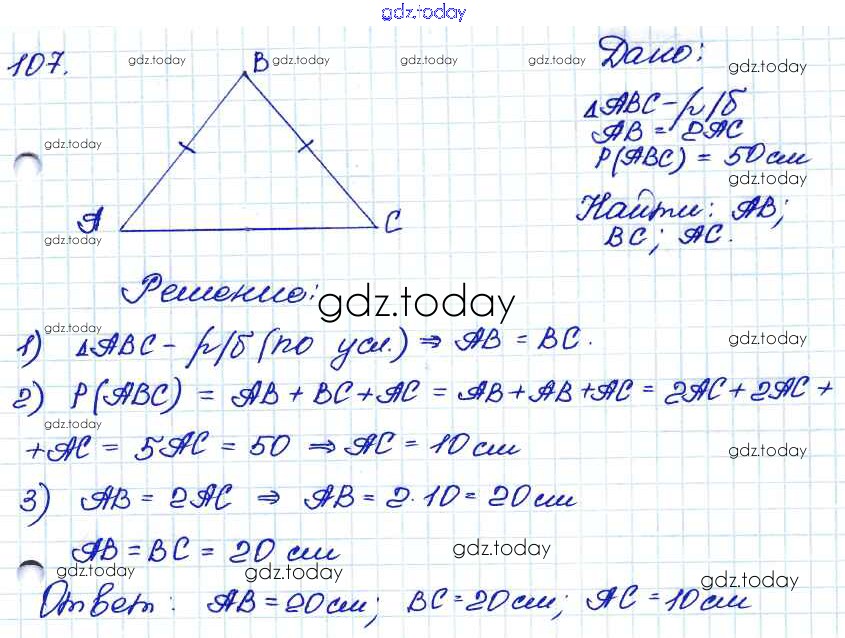 gdz.today
107.
gdz.today
B
gdz.today
gdz.today
gdz.today
Дано:
gdz.today
ΔABC - р/б
AB = 2AC
P(ABC) = 50 см
gdz.today
gdz.today
Найти: AB;
BC; AC.
A
C
gdz.today
Решение:
gdz.today
gdz.today
1) ΔABC - р/б (по усл.) ⇒ AB = BC.
gdz.today
2) P(ABC) = AB + BC + AC = AB + AB + AC = 2AC + 2AC +
gdz.today
+ AC = 5AC = 50 ⇒ AC = 10 см
gdz.today
3) AB = 2AC ⇒ AB = 2·10 = 20 см
AB = BC = 20 см
gdz.today
gdz.today
gdz.today
gdz.today
Ответ: AB = 20 см; BC = 20 см; AC = 10 см